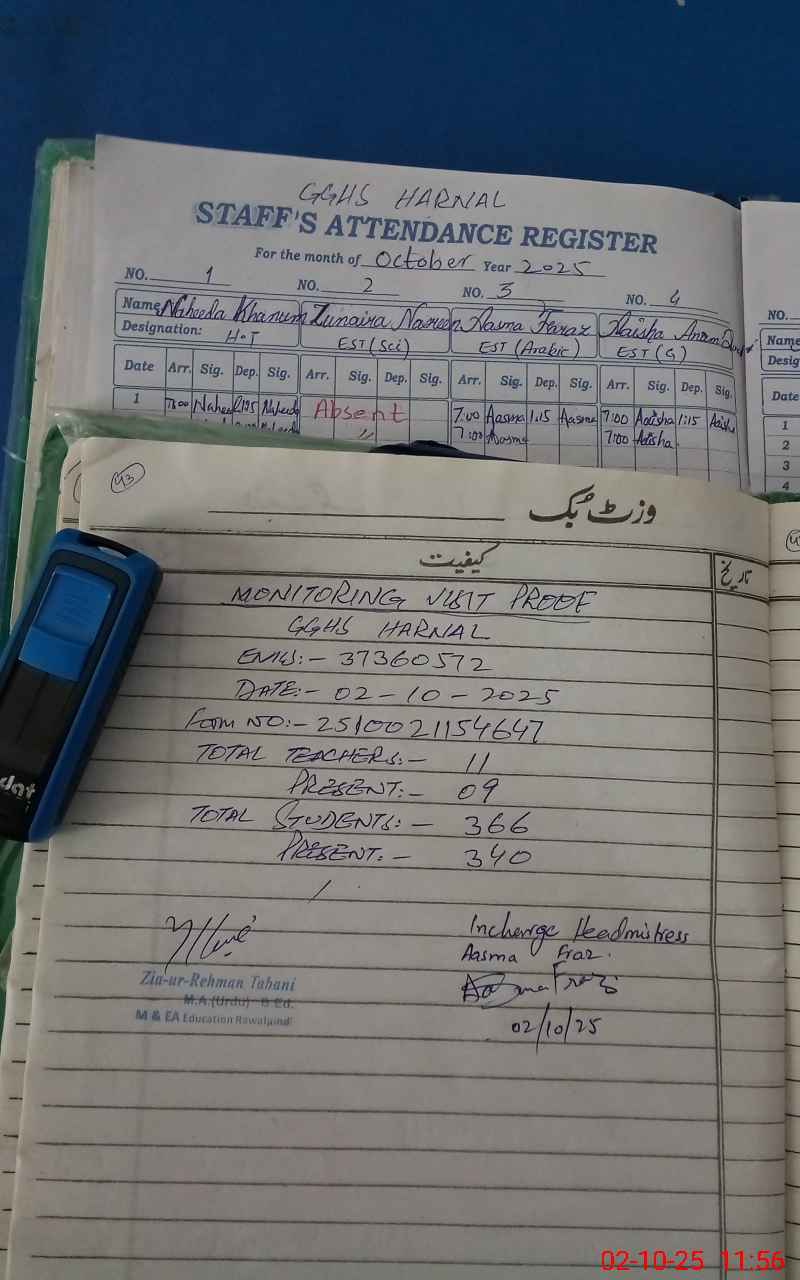 GGHS HARNAL
STAFF'S ATTENDANCE REGISTER
For the month of October Year 2025
NO. 1 NO. 2 NO. 3 NO. 4 NO.
Name Naheeda Khanum Zunaira Nasreen Aasma Faraz Aaisha Anam Name
Designation: H.T EST (Sci) EST (Arabic) EST (G) Desig
Date Arr. Sig. Dep. Sig. Arr. Sig. Dep. Sig. Arr. Sig. Dep. Sig. Arr. Sig. Dep. Sig. Date
1 Absent 7:00 Aasma 1:15 Aasma 7:00 Aaisha 1:15 Aaisha 1
7:00 Aasma 7:00 Aaisha 2
3
4
43
وزٹ بُک
کیفیت تاریخ
MONITORING VISIT PROOF
GGHS HARNAL
EMIS:- 37360572
DATE:- 02-10-2025
Form NO:- 2510021154647
TOTAL TEACHERS:- 11
PRESENT:- 09
TOTAL STUDENTS:- 366
PRESENT:- 340
Incharge Headmistress
Aasma Fraz.
Zia-ur-Rehman Tahani
M.A.(Urdu) B Ed.
M & EA Education Rawalpindi
02/10/25
dat
02-10-25 11:56